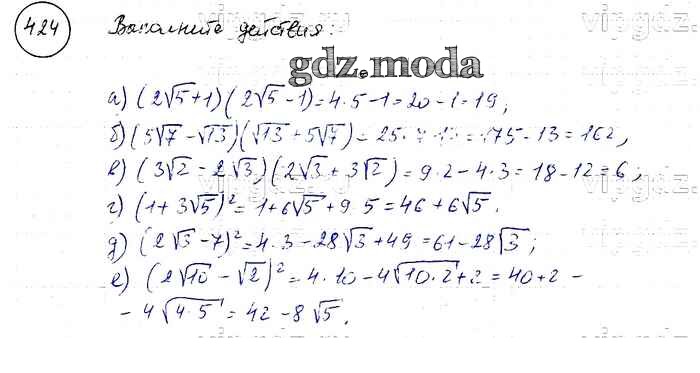 424 Выполните действия:
gdz.moda
а) (2√5+1)(2√5-1)=4·5-1=20-1=19;
б) (5√7-√13)(√13+5√7)=25·7-13=175-13=162,
в) (3√2-2√3)(2√3+3√2)=9·2-4·3=18-12=6;
г) (1+3√5)²=1+6√5+9·5=46+6√5.
д) (2√3-7)²=4·3-28√3+49=61-28√3;
е) (2√10-√2)²=4·10-4√10·2+2=40+2-
-4√4·5=42-8√5.